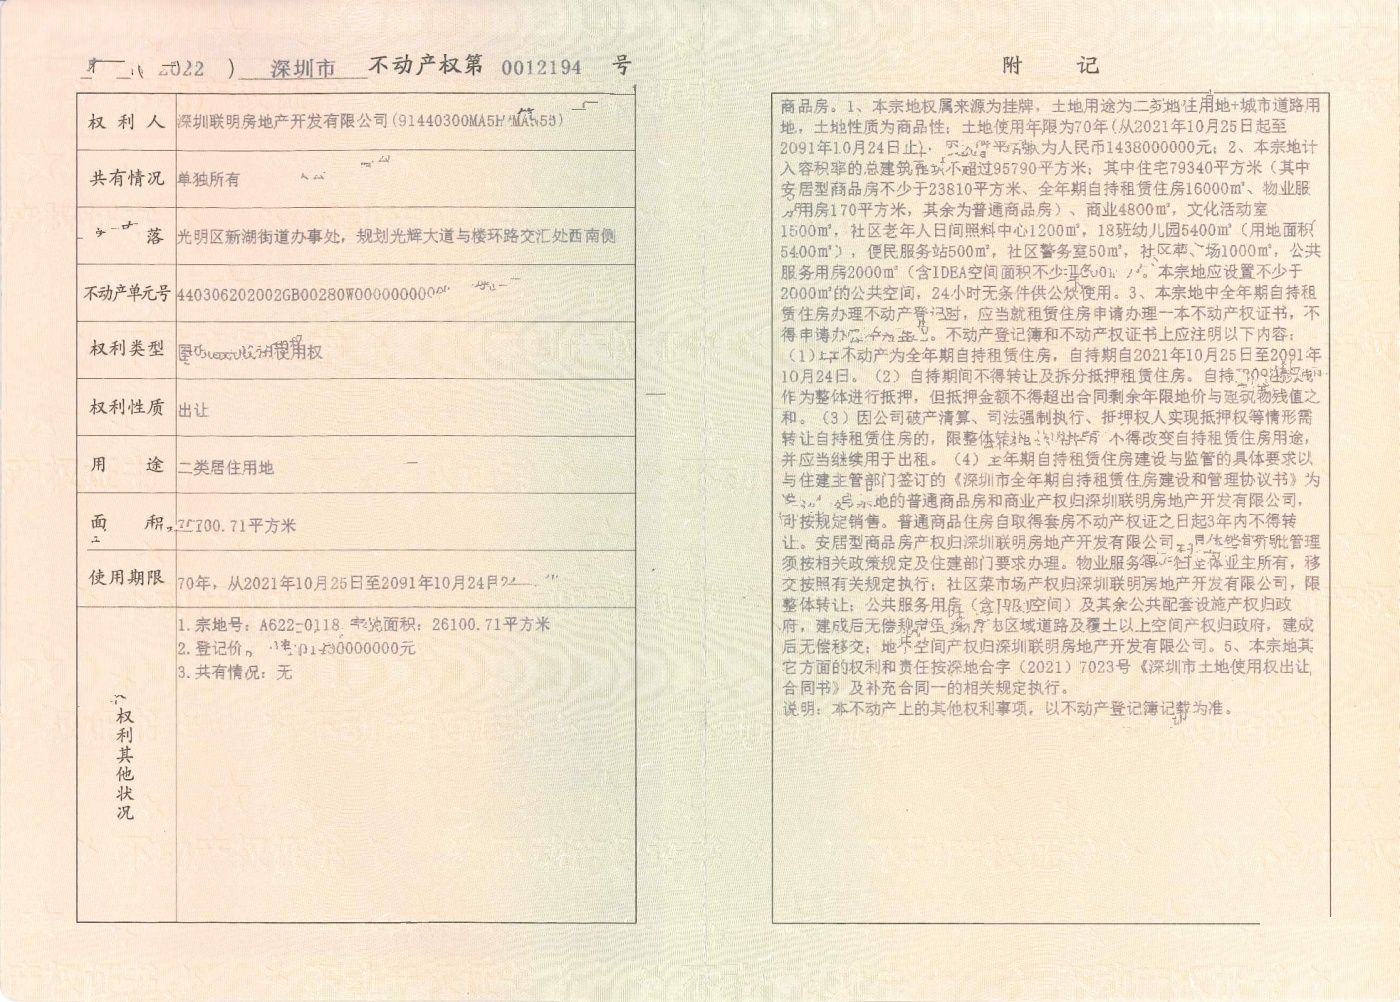 2022 ) 深圳市 不动产权第 0012194 号
权利人 深圳联明房地产开发有限公司(91440300MA5H
共有情况 单独所有
落 光明区新湖街道办事处，规划光辉大道与楼环路交汇处西南侧
不动产单元号 440306202002GB00280W000000000
权利类型 使用权
权利性质 出让
用途 二类居住用地
面积 100.71平方米
使用期限 70年，从2021年10月25日至2091年10月24日
权利其他状况
1.宗地号：A622-0118 面积：26100.71平方米
2.登记价 0000000元
3.共有情况：无
附 记
商品房。1、本宗地权属来源为挂牌，土地用途为二类 住用地+城市道路用
地，土地性质为商品性；土地使用年限为70年(从2021年10月25日起至
2091年10月24日止)， 为人民币1438000000元；2、本宗地计
入容积率的总建筑面积不超过95790平方米；其中住宅79340平方米（其中
安居型商品房不少于23810平方米、全年期自持租赁住房16000㎡、物业服
用房170平方米，其余为普通商品房）、商业4800㎡，文化活动室
1500㎡，社区老年人日间照料中心1200㎡，18班幼儿园5400㎡（用地面积
5400㎡），便民服务站500㎡，社区警务室50㎡，社区菜 场1000㎡，公共
服务用房2000㎡（含IDEA空间面积不少 。本宗地应设置不少于
2000㎡的公共空间，24小时无条件供公众使用。3、本宗地中全年期自持租
赁住房办理不动产登记时，应当就租赁住房申请办理一本不动产权证书，不
得申请办 。不动产登记簿和不动产权证书上应注明以下内容：
（1） 不动产为全年期自持租赁住房，自持期自2021年10月25日至2091年
10月24日。（2）自持期间不得转让及拆分抵押租赁住房。自持
作为整体进行抵押，但抵押金额不得超出合同剩余年限地价与建筑物残值之
和。（3）因公司破产清算、司法强制执行、抵押权人实现抵押权等情形需
转让自持租赁住房的，限整体 不得改变自持租赁住房用途，
并应当继续用于出租。（4）全年期自持租赁住房建设与监管的具体要求以
与住建主管部门签订的《深圳市全年期自持租赁住房建设和管理协议书》为
地的普通商品房和商业产权归深圳联明房地产开发有限公司，
可按规定销售。普通商品住房自取得套房不动产权证之日起3年内不得转
让。安居型商品房产权归深圳联明房地产开发有限公司， 管理
须按相关政策规定及住建部门要求办理。物业服务 业主所有，移
交按照有关规定执行；社区菜市场产权归深圳联明房地产开发有限公司，限
整体转让；公共服务用房（含 空间）及其余公共配套设施产权归政
府，建成后无偿 区域道路及覆土以上空间产权归政府，建成
后无偿移交；地下空间产权归深圳联明房地产开发有限公司。5、本宗地其
它方面的权利和责任按深地合字（2021）7023号《深圳市土地使用权出让
合同书》及补充合同一的相关规定执行。
说明：本不动产上的其他权利事项，以不动产登记簿记载为准。